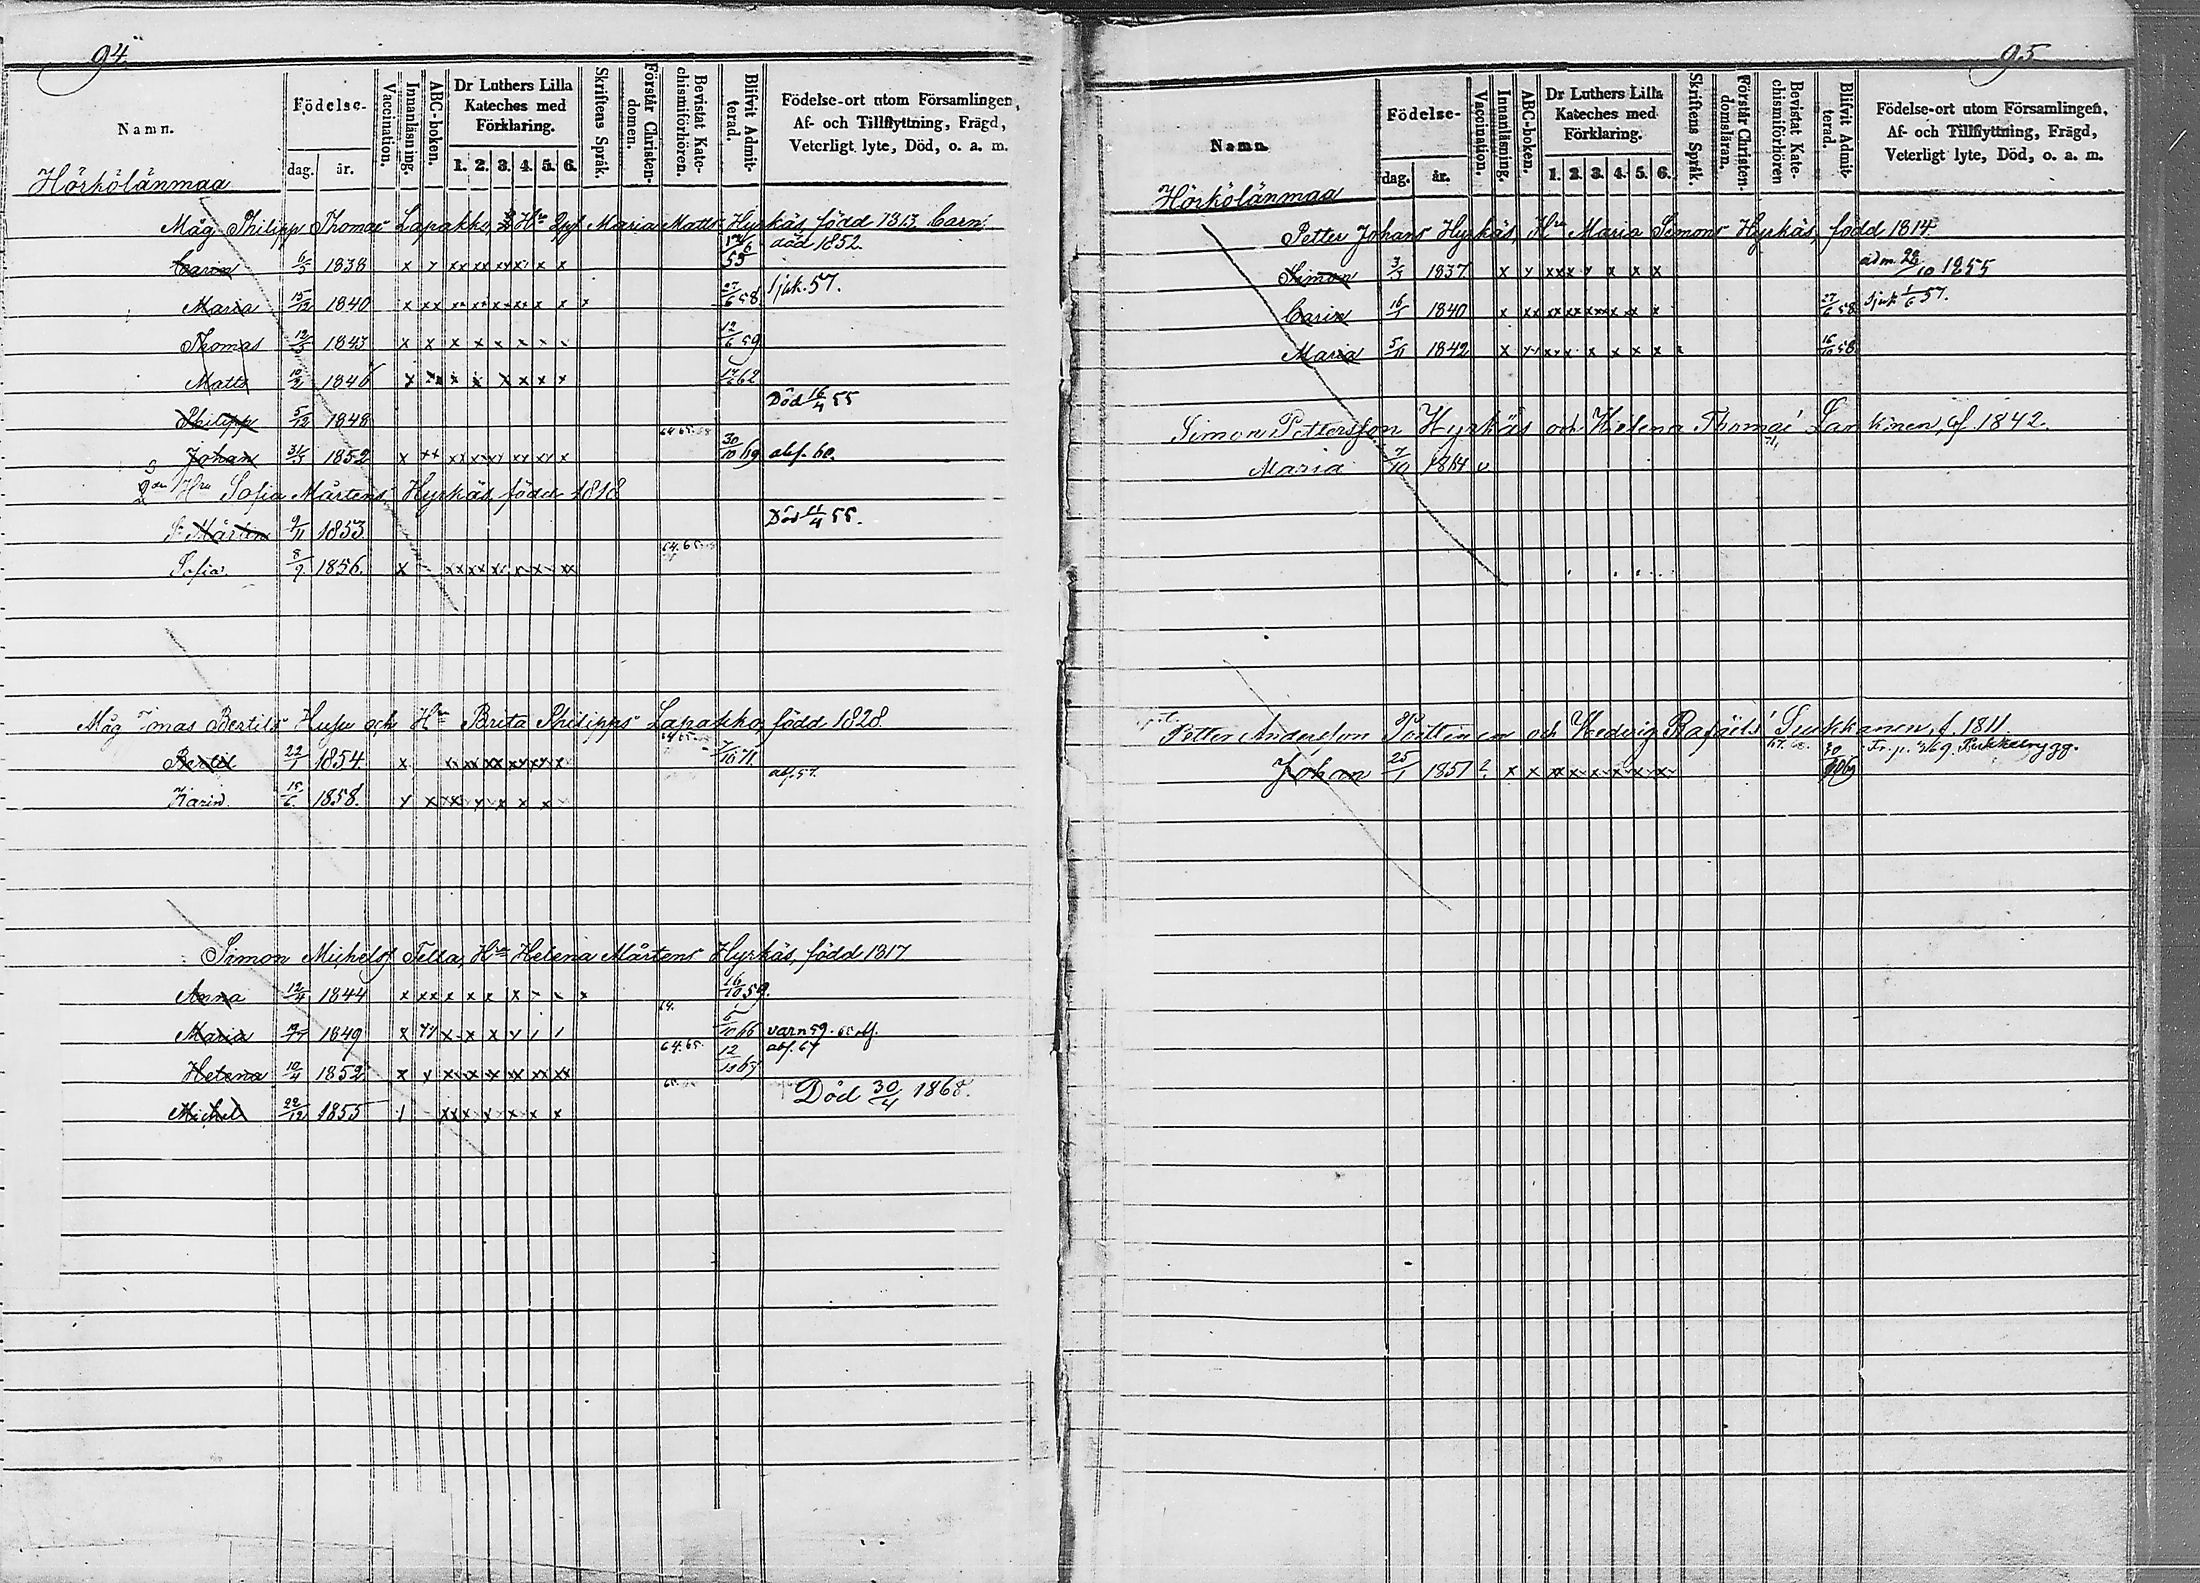 94
Namn.
Födelse-
dag. år.
Vaccination.
Innanläsning.
ABC-boken.
Dr Luthers Lilla
Kateches med
Förklaring.
1. 2. 3. 4. 5. 6.
Skriftens Språk.
Förstår Christen-
domen.
Bevistat Kate-
chismiförhören.
Blifvit Admit-
terad.
Födelse-ort utom Församlingen,
Af- och Tillflyttning, Frägd,
Veterligt lyte, Död, o. a. m.
Hörkölänmaa
Måg Philipp Thomas Lapakko, Hru Maria Matts Hyrkäs, född 1813. Barn:
död 1852.
Carin 6/5 1838 x y xx xx xx x x 55
Maria 15/12 1840 x xx x 27/6 58. sjuk. 57.
Thomas 12/3 1843 x x x x x x 12/6 59
Matts 10/2 1846 x x x x x x 17/6 62
Philipp 5/12 1848 Död 16/4 55
Johan 31/3 1852 x xx xx xx x 64 65 30/10 69 abs. 60.
Hru Sofia Mårtens Hyrkäs, född 1818
S. Mårten 9/11 1853. Död 11/4 55.
Sofia. 8/9 1856. x xx xx x x x xx 64. 65
Måg Jonas Bertils Husu och Hru Brita Philipps Lapakko, född 1828
Bertil 22/1 1854. x xx xx xx xx x 64 65 7/10 71. abs. 57.
Karin. 15/6. 1858. y x x y x x x
Simon Michels Tella, Hru Helena Mårtens Hyrkäs, född 1817
Anna 12/4 1844 x xx x x x x x 16/10 59.
Maria 1849 x yy x x x y 64. 6/10 66 varn 59.
Helena 10/4 1852 x y xx xx xx xx xx 64. 65. 12/10 67 abs. 67
Michel 22/12 1855 xx x y x x x 65 Död 30/4 1868.
95
Namn.
Födelse-
dag. år.
Vaccination.
Innanläsning.
ABC-boken.
Dr Luthers Lilla
Kateches med
Förklaring.
1. 2. 3. 4. 5. 6.
Skriftens Språk.
Förstår Christen-
domsläran.
Bevistat Kate-
chismiförhören
Blifvit Admit-
terad.
Födelse-ort utom Församlingen,
Af- och Tillflyttning, Frägd,
Veterligt lyte, Död, o. a. m.
Hörkölänmaa
Petter Johans Hyrkäs, Hru Maria Simons Hyrkäs, född 1814
Simon 3/5 1837 x y xxx y x x x adm. 28/10 1855
Carin 1840 x xx xx xx xx xx x 27/6 58 sjuk 1/6 57.
Maria 5/11 1842 x x x x x x x 16/10 58
Simon Pettersson Hyrkäs och Helena Thomas Lankinen, f. 1842.
Maria 7/10 1864 v
Petter Andersson Pöttinen och Hedvig Rafaels Suikkanen, f. 1811
Johan 25/1 1851 x x xx x x x x x 67. 68. 30/10 69 Fr. p. 369.